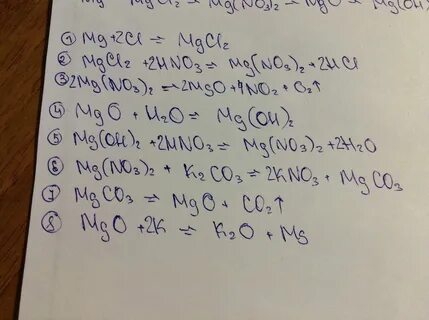 MgCl₂ = Mg(NO₃)₂ = MgO = Mg(OH)
① Mg+2Cl = MgCl₂
② MgCl₂ +2HNO₃ = Mg(NO₃)₂ +2HCl
③ 2Mg(NO₃)₂ = 2MgO + 4NO₂ + O₂↑
④ MgO + H₂O = Mg(OH)₂
⑤ Mg(OH)₂ +2HNO₃ = Mg(NO₃)₂ + 2H₂O
⑥ Mg(NO₃)₂ + K₂CO₃ = 2KNO₃ + MgCO₃
⑦ MgCO₃ = MgO + CO₂↑
⑧ MgO +2K = K₂O + Mg